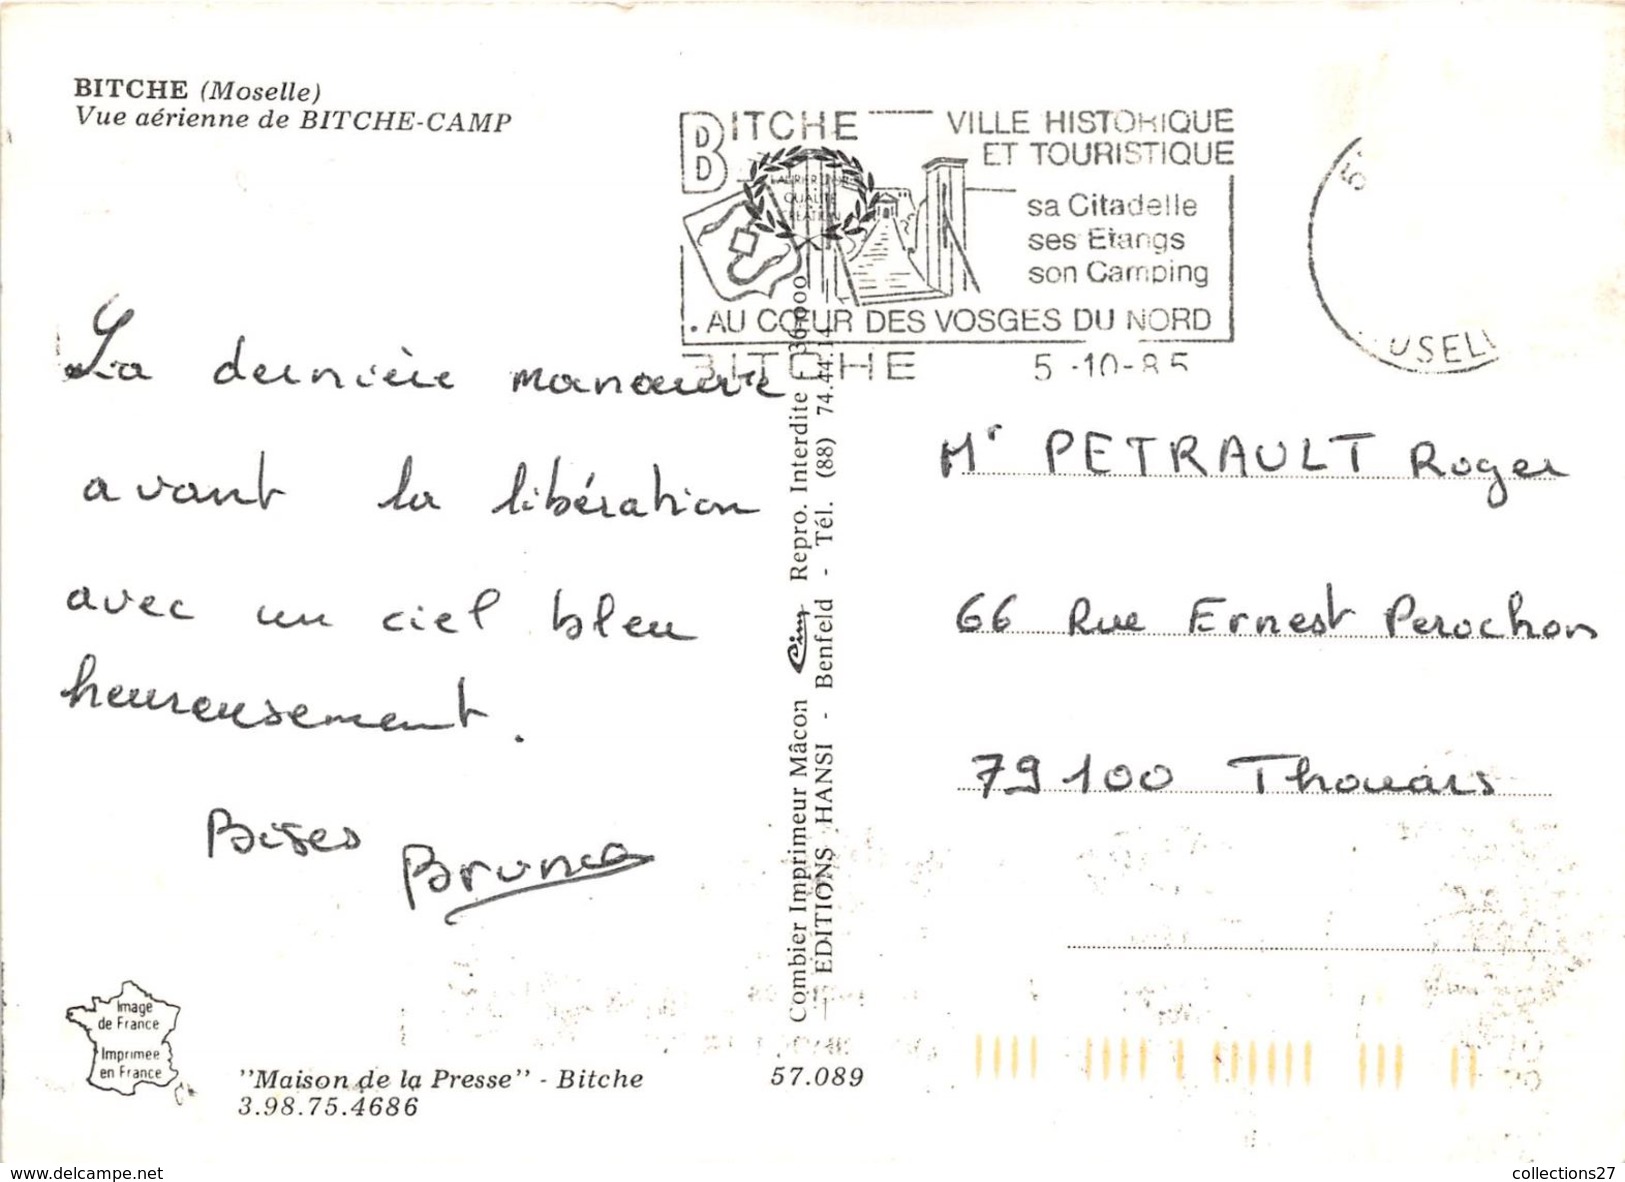 BITCHE (Moselle)
Vue aérienne de BITCHE-CAMP
BITCHE
VILLE HISTORIQUE
ET TOURISTIQUE
sa Citadelle
ses Etangs
son Camping
. AU CŒUR DES VOSGES DU NORD
BITCHE 5-10-85
QUALITÉ
CRÉATION
La dernière manœuvre
avant la libération
avec un ciel bleu
heureusement.
Bises
Bruno
Combier Imprimeur Mâcon Cim Repro. Interdite
EDITIONS HANSI - Benfeld - Tél. (88) 74.44.14
Mr PETRAULT Roger
66 Rue Ernest Perochon
79100 Thouars
Image
de France
Imprimée
en France
"Maison de la Presse" - Bitche
3.98.75.4686
57.089
www.delcampe.net
collections27